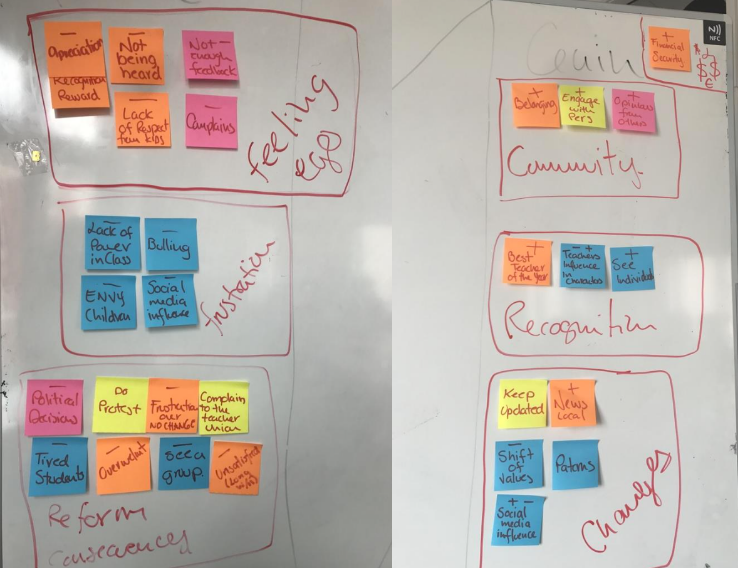 Apreciation
Recognition
Reward
Not
being
heard
Not
enough
feedback
Lack
of Respect
from KIDS
Complains
feeling
ego
Lack of
Power
in Class
Bulling
ENVY
Children
Social
media
influence
frustration
Political
Decisions
Do
Protest
Frustration
over
NO CHANGE
Complain
to the
teacher
Union
Tired
Students
See a
group.
Reform
Gain
+
Financial
Security
N))
NFC
+
Belonging
+
Engage
with
Pers
+
Opinions
from
others
Community
+
Best
Teacher
of the Year
- +
Teachers
Influence
in
+
See
Individual
Recognition
Keep
Updated
+
News
Local
Shift
of
values
+ -
Social
media
influence
Changes